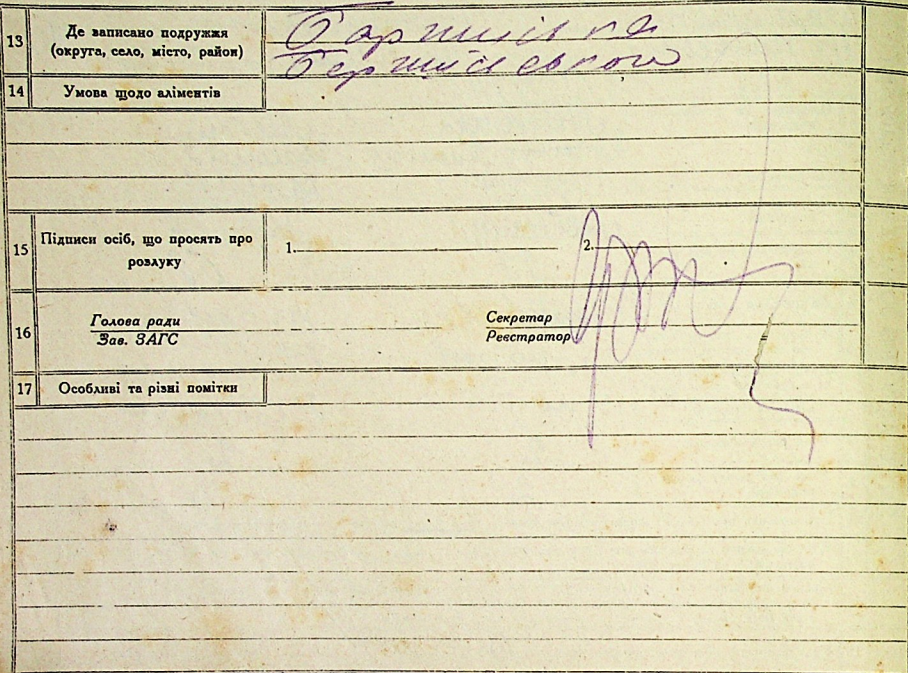 13 Де записано подружжя
(округа, село, місто, район)
14 Умова щодо аліментів
15 Підписи осіб, що просять про
розлуку
1.
2.
16 Голова ради
Зав. ЗАГС
Секретар
Реєстратор
17 Особливі та різні помітки